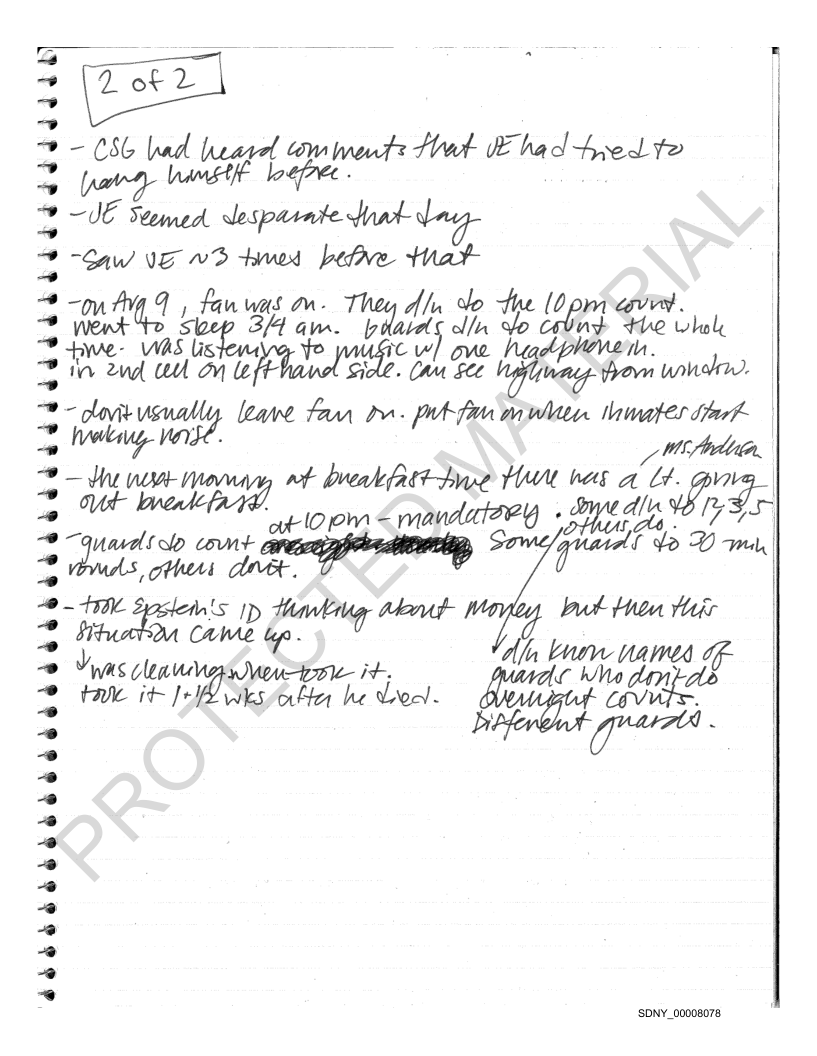 2 of 2
- CSG had heard comments that JE had tried to
hang himself before.
- JE seemed desparate that day
- Saw JE ~3 times before that
- on Aug 9, fan was on. They d/n do the 10pm count.
went to sleep 3/4 am. Guards d/n do count the whole
time. Was listening to music w/ one headphone in.
in 2nd cell on left hand side. Can see highway from window.
- don't usually leave fan on. put fan on when inmates start
making noise.
ms. Anderson
- the next morning at breakfast time there was a Lt. giving
out breakfast.
at 10 pm - mandatory. some d/n do 12, 3, 5
others do.
- guards do count Some guards do 30 min
rounds, others don't.
- took Epstein's ID thinking about money but then this
situation came up.
was cleaning when took it.
took it 1+1/2 wks after he died.
d/n know names of
guards who don't do
overnight counts.
Different guards.
PROTECTED MATERIAL
SDNY_00008078